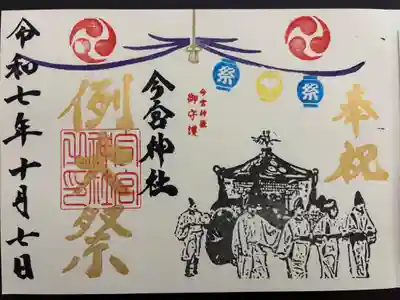 奉祝
祭
祭
今宮神社
御守護
今宮神社
例大祭
令和七年十月七日